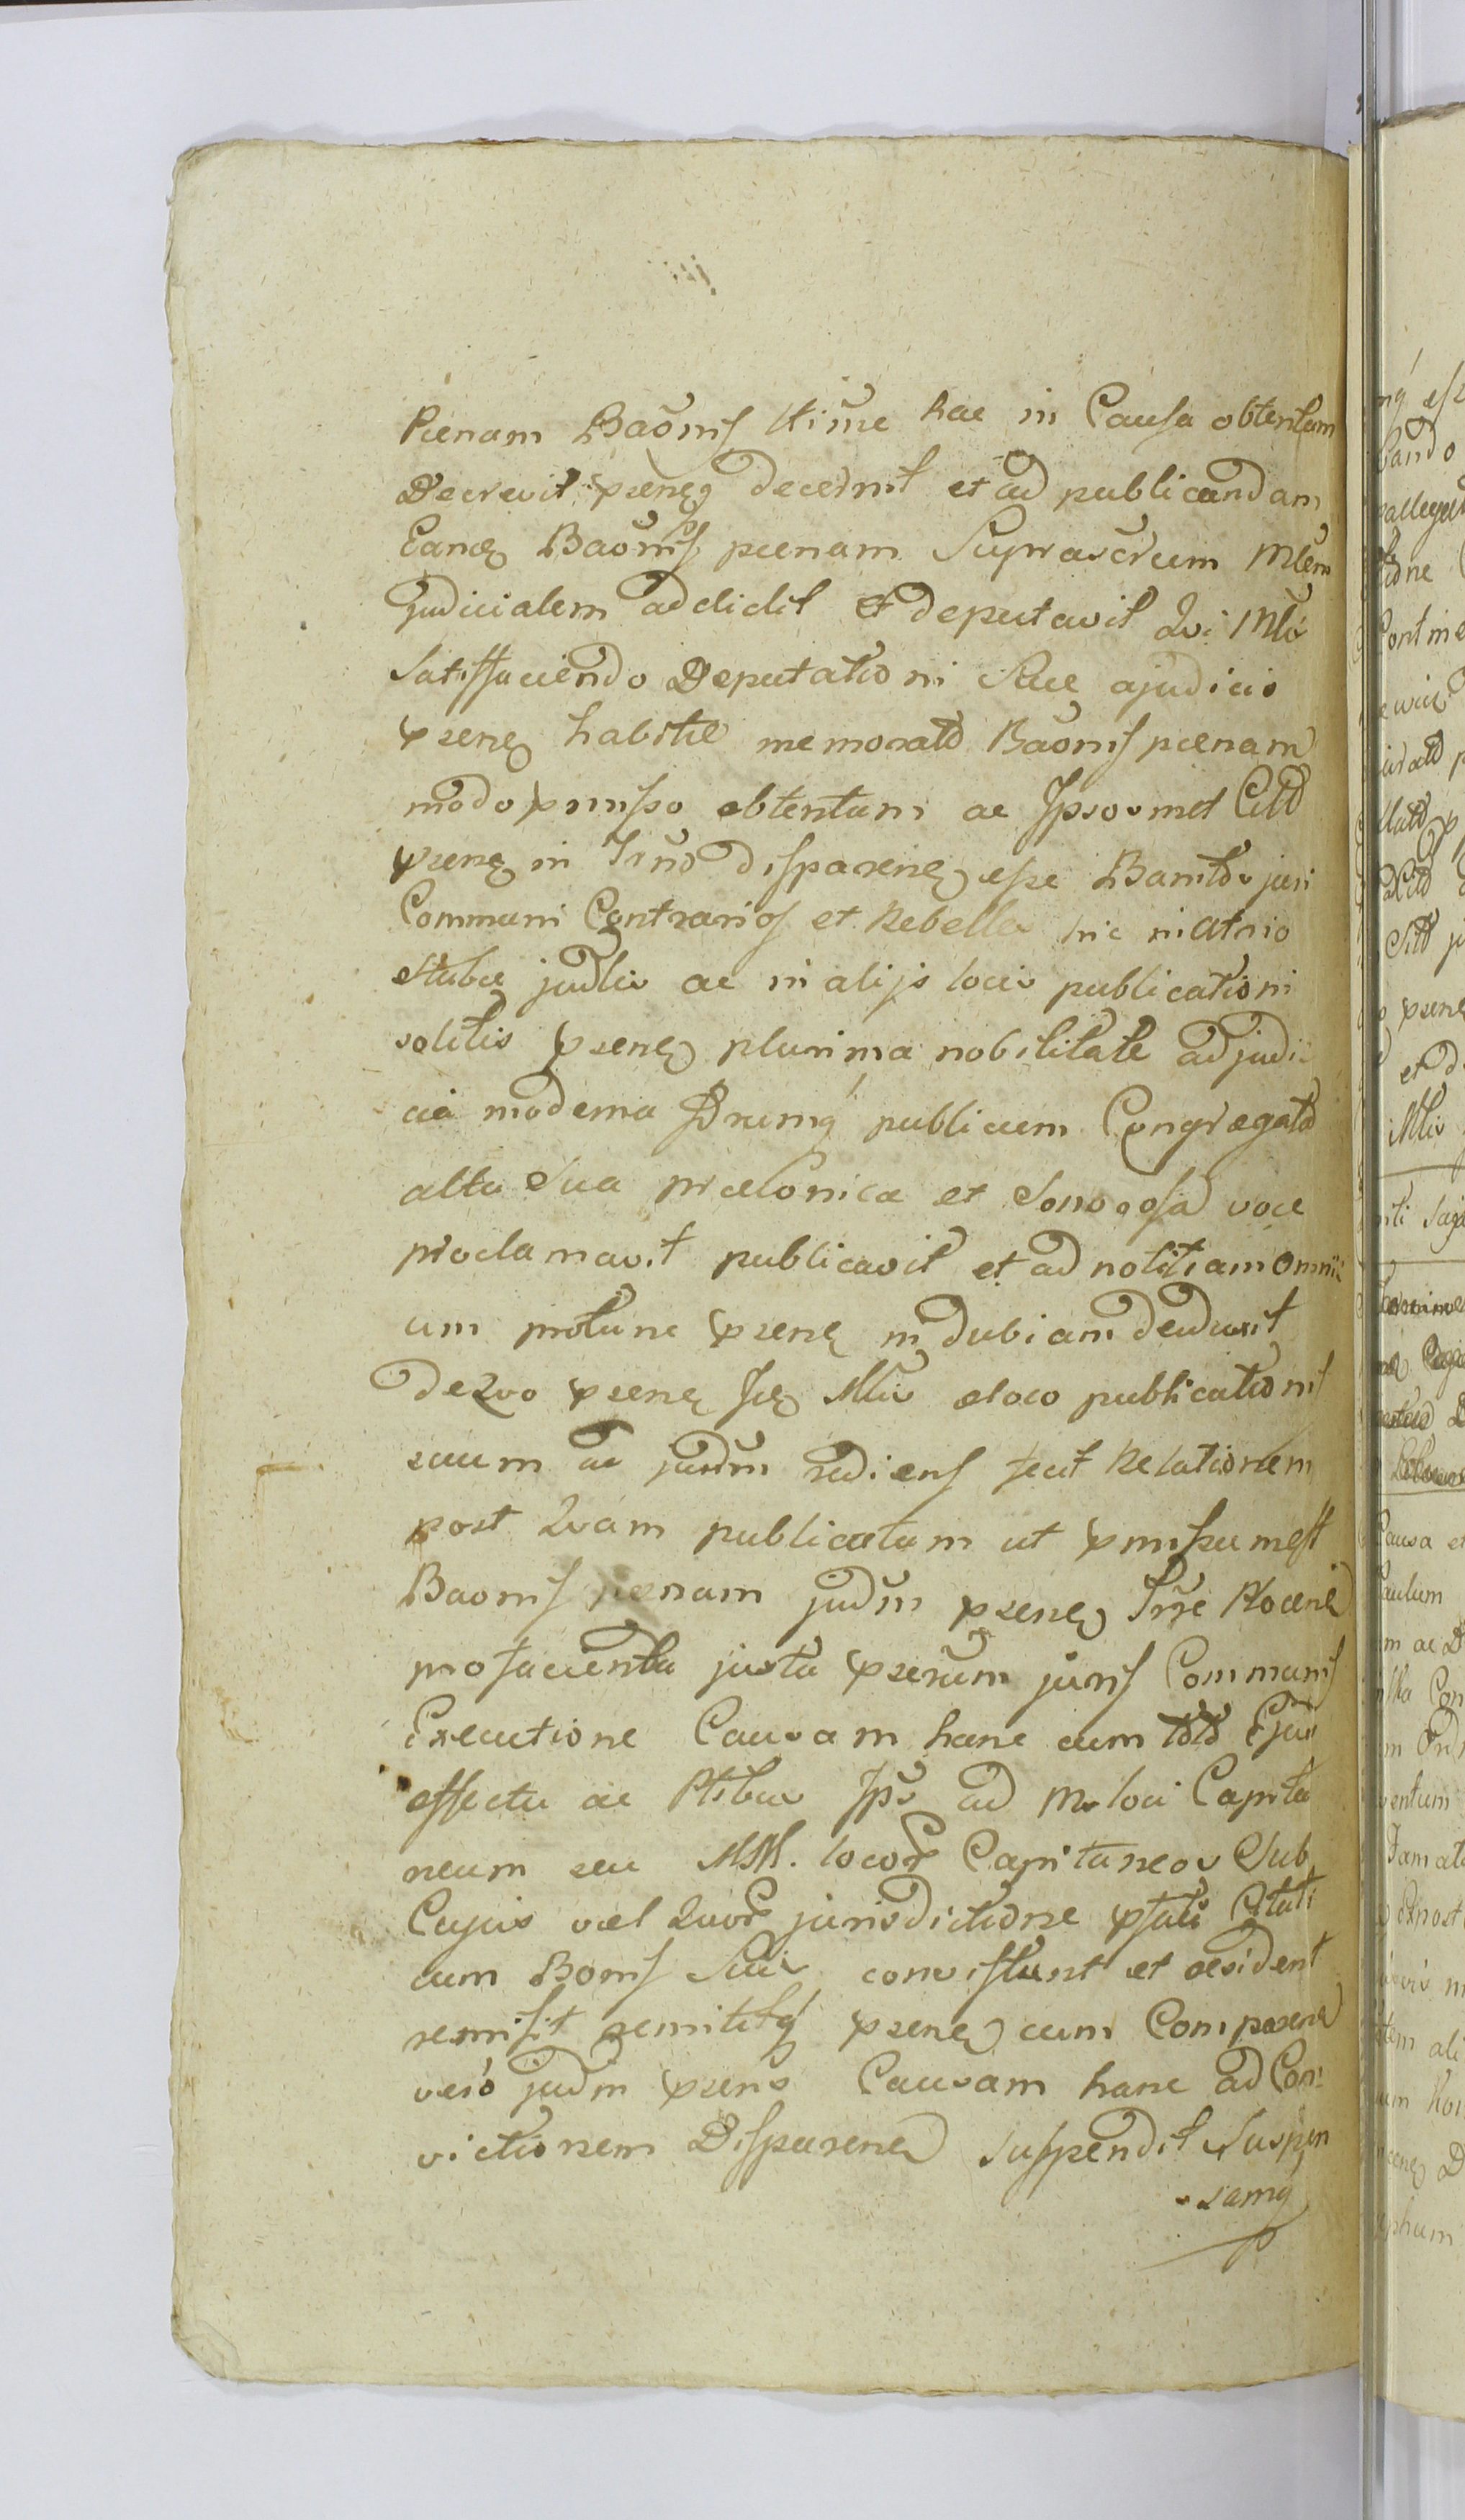 Pœnam Baõnis Ktime hac in Causa obtentam
Decrevit pseneq decernit et ad publicandam
Eandq Baõnis pœnam Suprascrum Mlem
judicialem addidit et deputavit Qvi Mlis
Satisfaciendo Deputationi Suæ ajudicio
pseneq habitæ memorató Baõnis pœnam
modo pmisso obtentam ac Ipsosmet Cittõ
psenq in Trnõ disparenq esse Banitõs juri
Communi Contrarios et Rebelles hic in atrio
Stubæ judlis ac in alijs locis publicationi
solitis pseneq plurima nobilitate ad judi-
cia moderna Drumq publicum Congregatõ
alta Sua præconica et Sonorosa voce
proclamavit publicavit et ad notitiam omni
um protunc psenq indubiam deduxit
De Qvo psenq Iq Mlis eloco publicationis
suum ac judm rediens fecit Relationem
post Qvam publicatam ut pmissum est
Baonis pœnam judm pseneq Trre Plocenẽ
profacienda juxta pserum juris Communis
Executione Causam hanc cum totõ Ejus
effectu ac Ptibus Ips ad M. loci Capita
neum seu MM. locor Capitaneos Sub
Cujus vel Quor jurisdictione pfati Citati
cum Bonis Suis consistunt et resident
remisit remittitq pseneq cum Comparenẽ
veró judm psens Causam hanc ad Con-
victionem Disparenẽ suspendit Suspen
samq